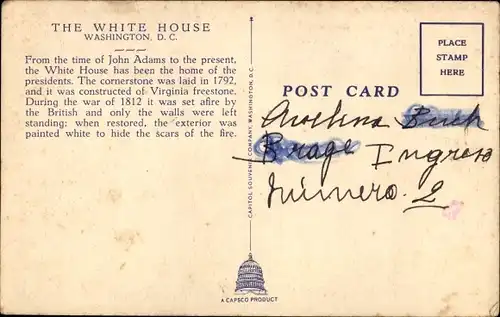 THE WHITE HOUSE
WASHINGTON, D. C.
From the time of John Adams to the present,
the White House has been the home of the
presidents. The cornerstone was laid in 1792,
and it was constructed of Virginia freestone.
During the war of 1812 it was set afire by
the British and only the walls were left
standing; when restored, the exterior was
painted white to hide the scars of the fire.
CAPITOL SOUVENIR COMPANY, WASHINGTON, D.C.
A CAPSCO PRODUCT
PLACE
STAMP
HERE
POST CARD
Avelina
Brage Ingreso
Número 2